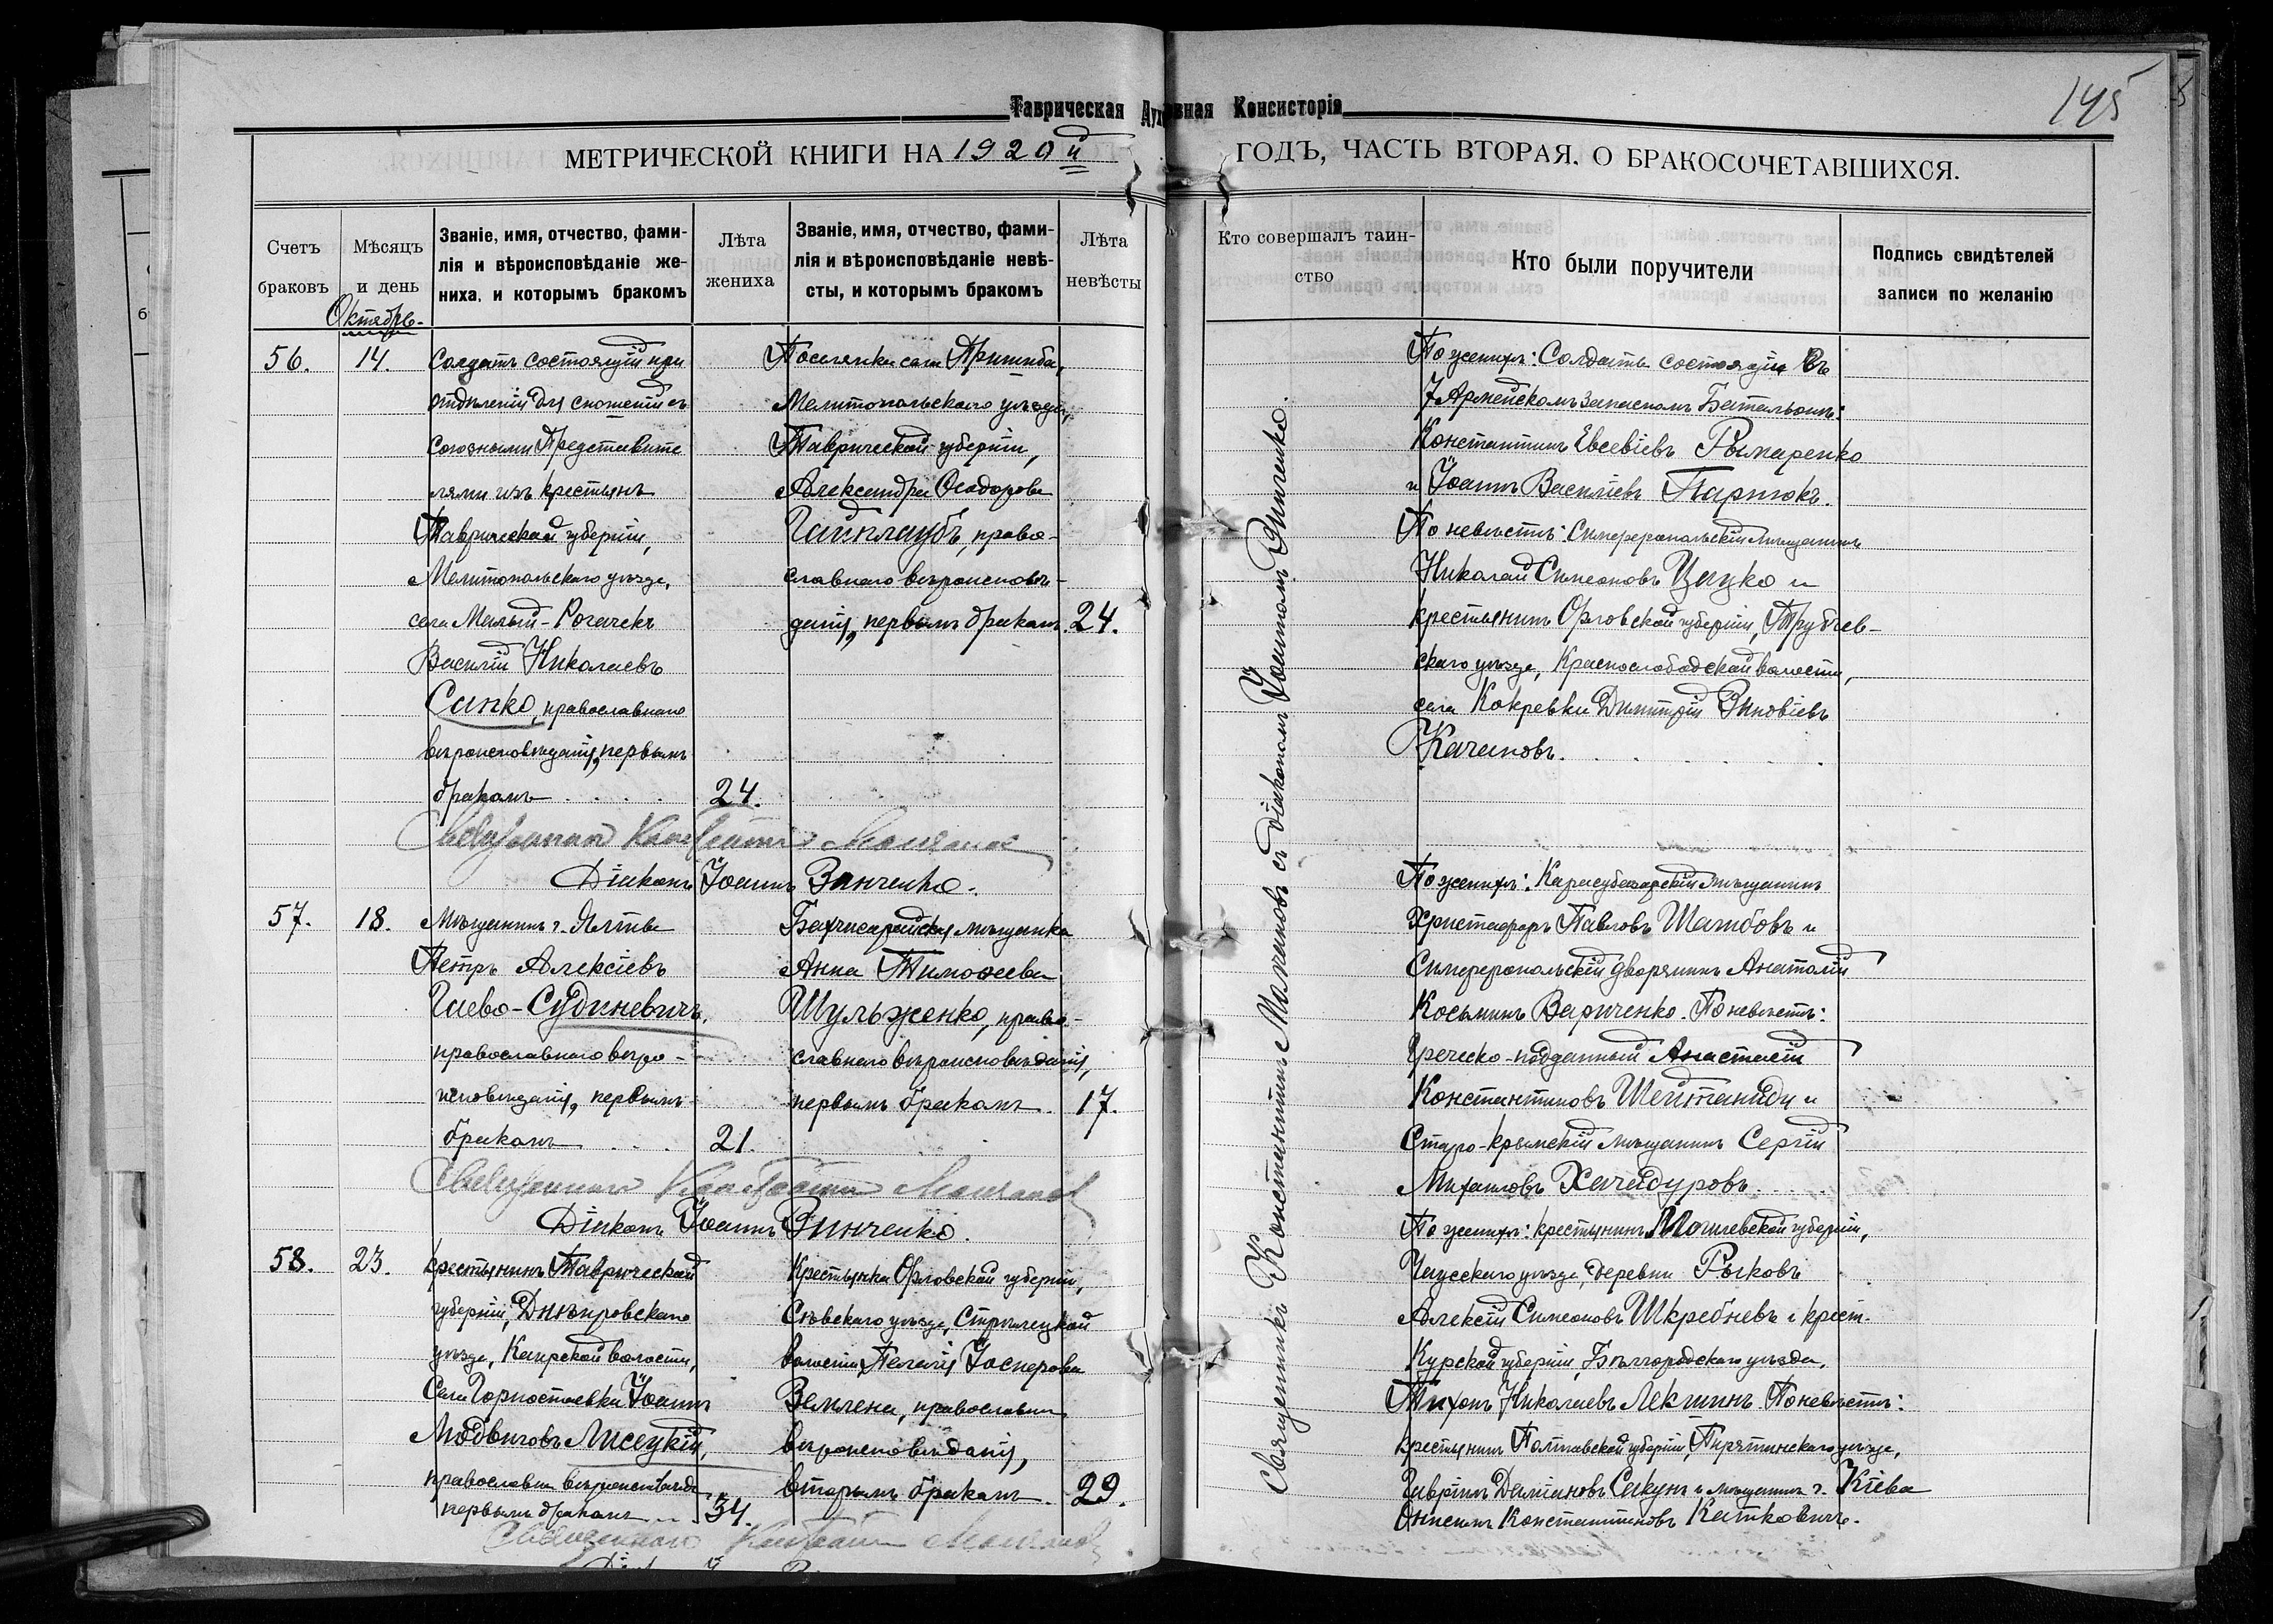 145
Таврическая Духовная Консисторія
МЕТРИЧЕСКОЙ КНИГИ НА 1920й ГОДЪ, ЧАСТЬ ВТОРАЯ, О БРАКОСОЧЕТАВШИХСЯ.
Счетъ браковъ
Мѣсяцъ и день
Званіе, имя, отчество, фами-
лія и вѣроисповѣданіе же-
ниха, и которымъ бракомъ
Лѣта жениха
Званіе, имя, отчество, фами-
лія и вѣроисповѣданіе невѣ-
сты, и которымъ бракомъ
Лѣта невѣсты
Кто совершалъ таин-
ство
Кто были поручители
Подпись свидѣтелей
записи по желанію
Октябрь.
56.
14.
Солдатъ состоящій при
отдѣленіи для сношеній съ
союзными Представите
лями изъ крестьянъ
Таврической губерніи,
Мелитопольскаго уѣзда,
села Малый-Рогачекъ
Василій Николаевъ
Санко, православнаго
вѣроисповѣданія, первымъ
бракомъ
24.
Поселянка села Пришиба,
Мелитопольскаго уѣзда,
Таврической губерніи,
Александра Ѳеодорова
Гайнлаубъ, право-
славнаго вѣроисповѣ-
данія, первымъ бракомъ.
24.
По женихѣ: Солдаты состоящіе въ
7 Армейскомъ запасномъ Баталіонѣ:
Константинъ Евсевіевъ Рымаренко
и Іоаннъ Василіевъ Парнюкъ.
По невѣстѣ: Симферопольскій мѣщанинъ
Николай Симеоновъ Цацко и
крестьянинъ Орловской губерніи, Трубчев-
скаго уѣзда, Краснослободской волости,
села Кокревки Димитрій Зиновіевъ
Качановъ.
Священникъ Константинъ Молчановъ
Діаконъ Іоаннъ Зинченко.
57.
18.
Мѣщанинъ г. Ялты
Петръ Алексіевъ
Гаево-Судкневичъ,
православнаго вѣро-
исповѣданія, первымъ
бракомъ
21.
Бахчисарайская мѣщанка
Анна Тимоѳеева
Шульженко, право-
славнаго вѣроисповѣданія,
первымъ бракомъ.
17.
По женихѣ: Карасубазарскій мѣщанинъ
Христофоръ Павловъ Шамбовъ и
Симферопольскій дворянинъ Анатолій
Косьминъ Вариченко. По невѣстѣ:
Греческо-подданный Анастасій
Константиновъ Шейтаниди и
Старо-Крымскій мѣщанинъ Сергій
Михаиловъ Хачадуровъ.
Священникъ Константинъ Молчановъ
Діаконъ Іоаннъ Зинченко.
58.
23.
Крестьянинъ Таврической
губерніи, Днѣпровскаго
уѣзда, Каирской волости,
Села Горностаевки Іоаннъ
Людвиговъ Лисецкій,
православн. вѣроисповѣд.
первымъ бракомъ
34.
Крестьянка Орловской губерніи,
Сѣвскаго уѣзда, Стрѣлецкой
волости, Пелагія Іосифова
Землена, православн.
вѣроисповѣданія,
вторымъ бракомъ.
29.
По женихѣ: крестьянинъ Могилевской губерніи,
Чаусскаго уѣзда, деревни Рысковъ
Алексій Симеоновъ Шкребневъ и крест.
Курской губерніи, Бѣлгородскаго уѣзда,
Тихонъ Николаевъ Лекшинъ. По невѣстѣ:
крестьянинъ Полтавской губерніи, Пирятинскаго уѣзда,
Гавріилъ Даміановъ Сакунъ и мѣщанинъ г. Кіева
Онисимъ Константиновъ Катковичъ.
Священникъ Константинъ Молчановъ
Священникъ Константинъ Молчановъ съ діакономъ Іоанномъ Зинченко.